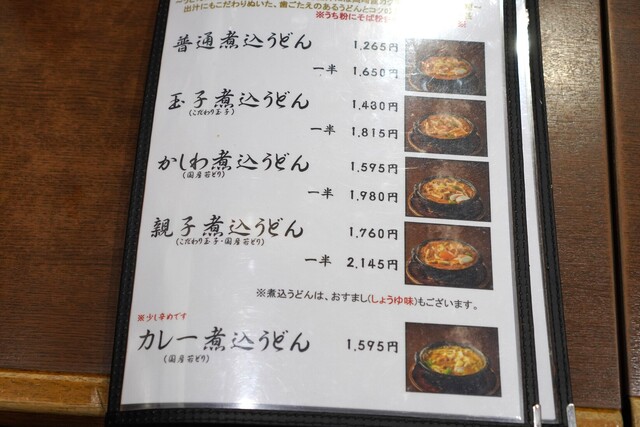 出汁にもこだわりぬいた、歯ごたえのあるうどんとコ
※うち粉にそば粉
普通煮込うどん 1,265円
一半 1,650円
玉子煮込うどん 1,430円
(こだわり玉子)
一半 1,815円
かしわ煮込うどん 1,595円
(国産若どり)
一半 1,980円
親子煮込うどん 1,760円
(こだわり玉子・国産若どり)
一半 2,145円
※煮込うどんは、おすまし(しょうゆ味)もございます。
※少し辛めです
カレー煮込うどん 1,595円
(国産若どり)